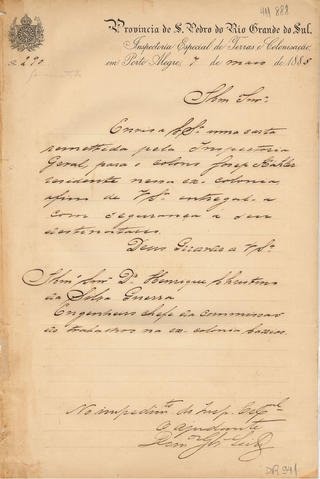 411 888
Provincia de S. Pedro do Rio Grande do Sul.
Inspectoria Especial de Terras e Colonisação,
N. 290
em Porto Alegre, 7 de maio de 1885
Illmo Snr.
Envio a V.Sa. uma carta
remettida pela Inspectoria
Geral, para o colono Josep Kahler
residente nessa ex-colonia
afim de V.Sa. entregal-a
com segurança a seu
destinatario.
Deus Guarde a V.Sa.
Illmo Snr Dr. Henrique Christino
da Silva Guerra
Engenheiro chefe da commissão
de trabalhos na ex-colonia Caxias
No impedimto do Insp. Esp.al
o ajudante
DR 041